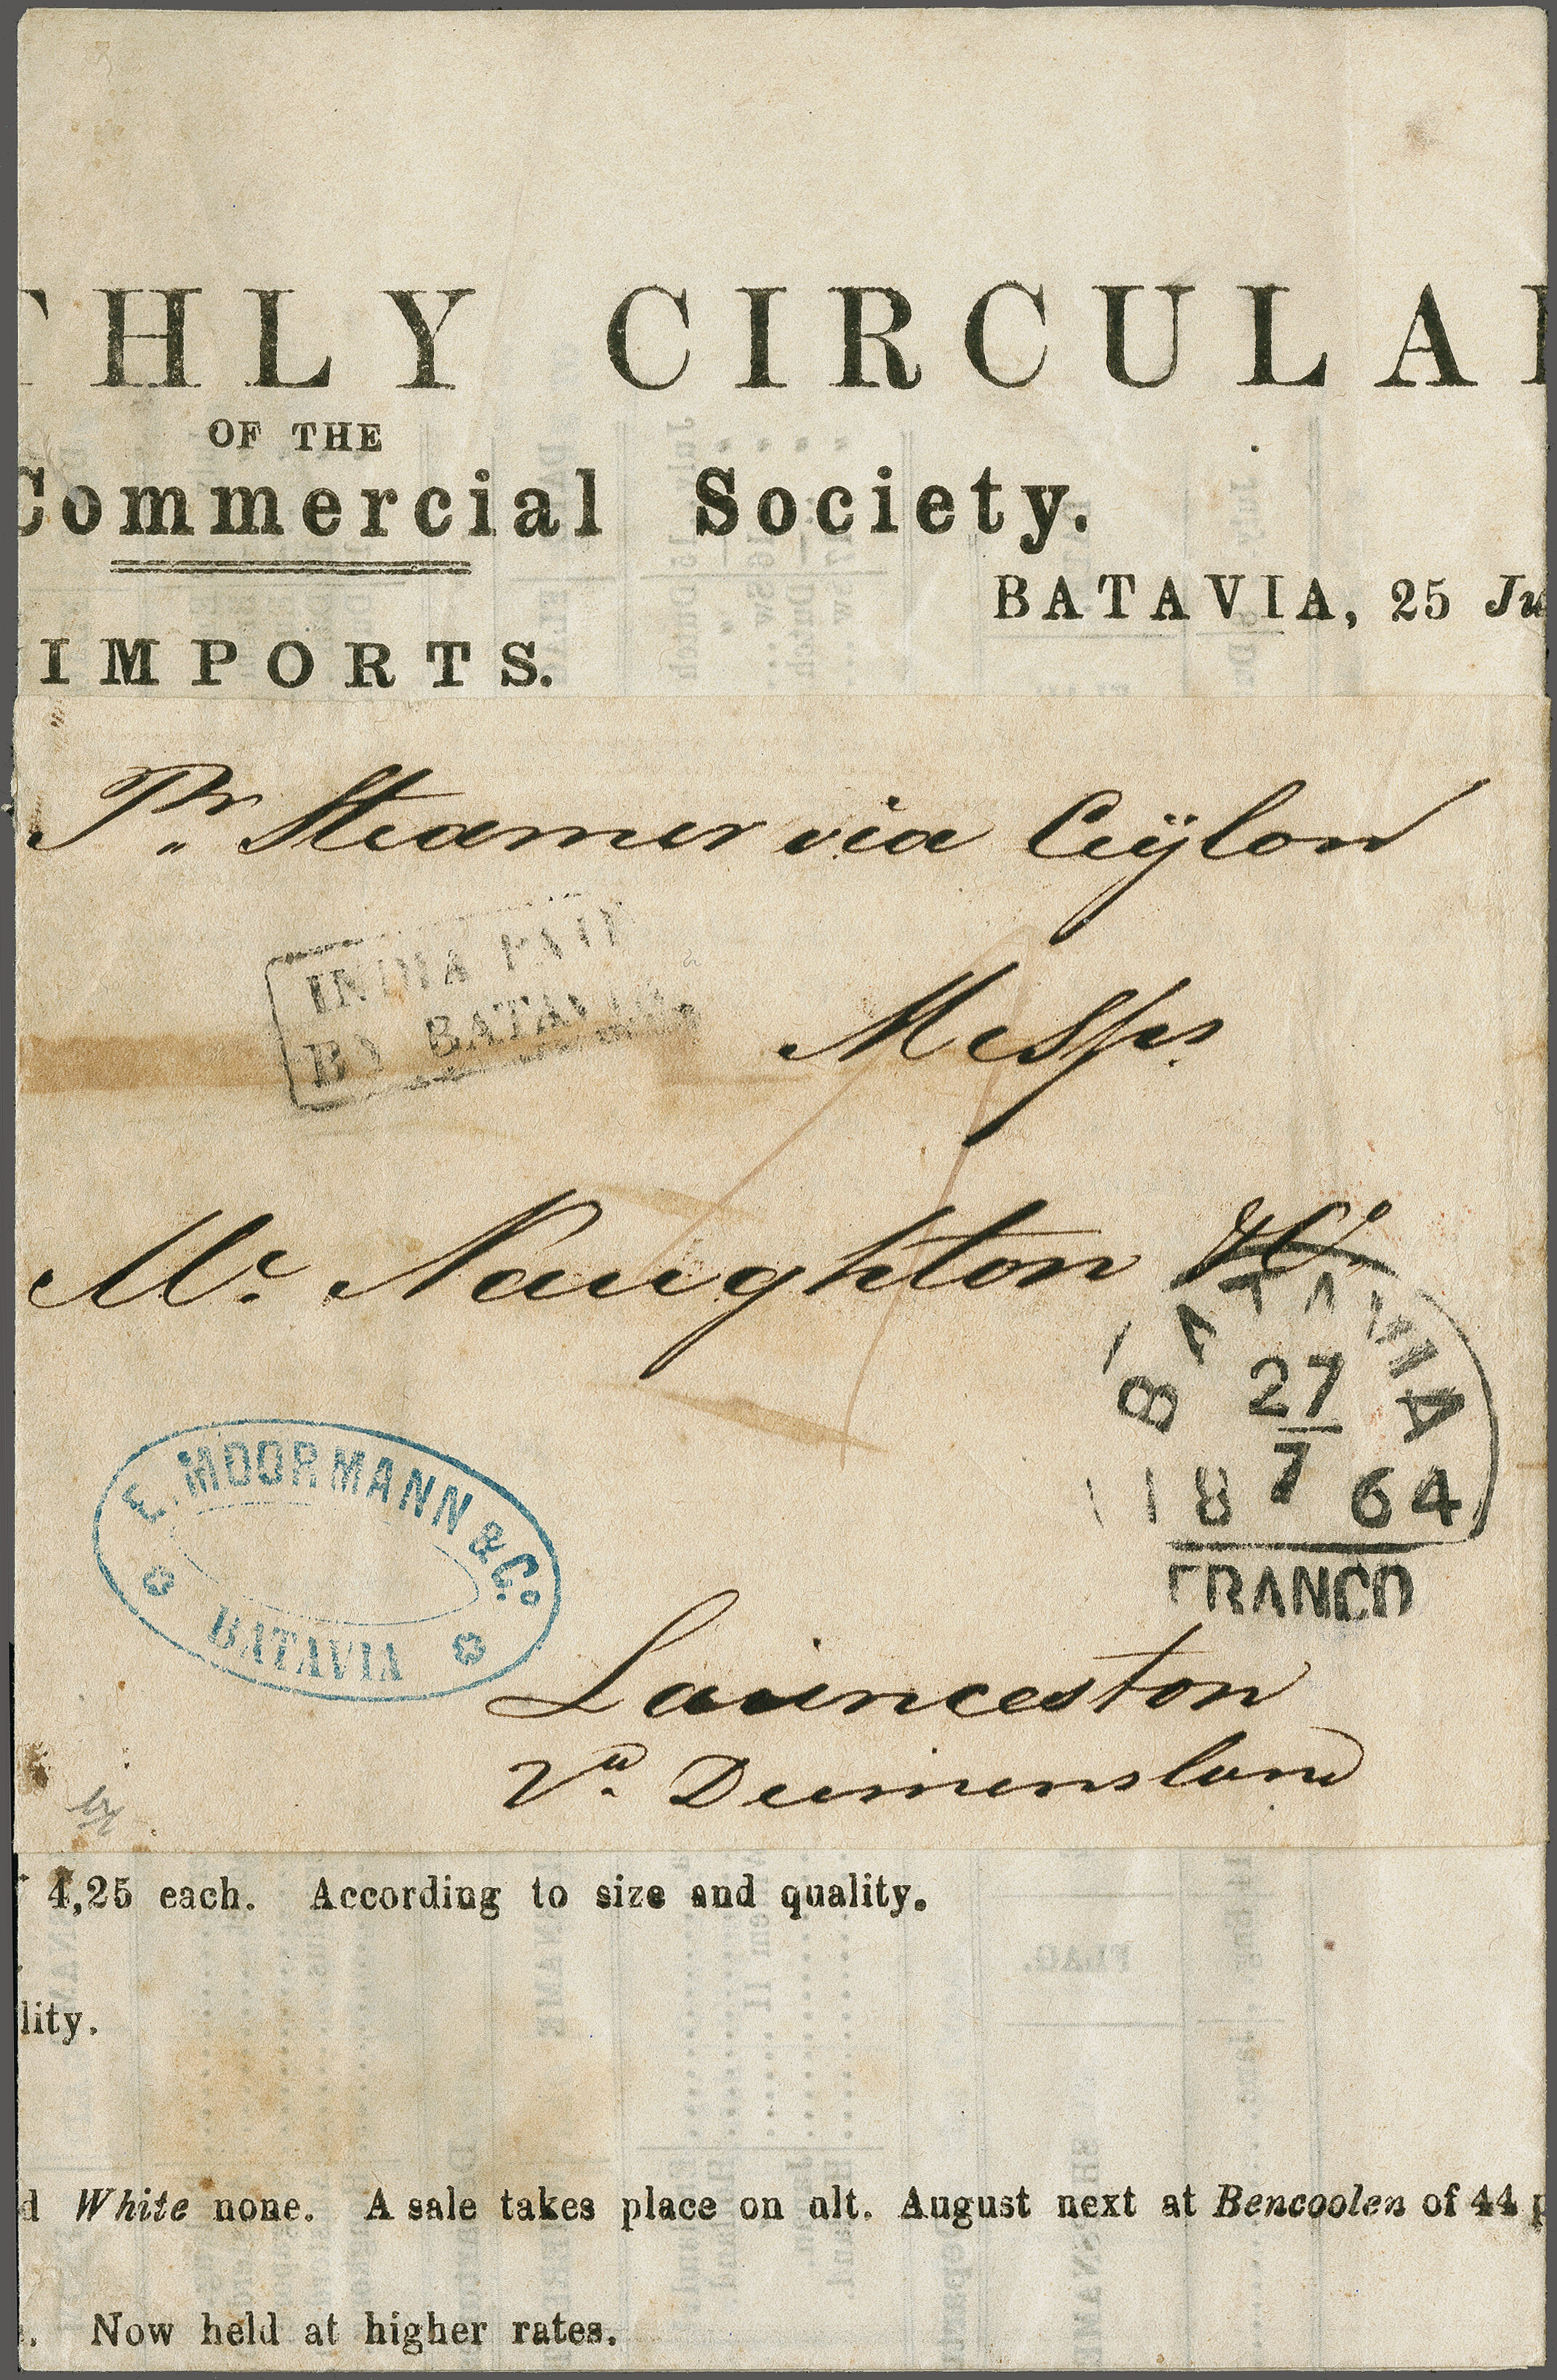 THLY CIRCULAR
OF THE
Commercial Society.
BATAVIA, 25 Ju
IMPORTS.
Pr. Steamer via Ceÿlon
INDIA PAID
BY BATAVIA
Messrs
Mc. Naughton & Co.
BATAVIA
27
7
18 64
FRANCO
E. MOORMANN & Co.
BATAVIA
Launceston
Vn. Diemensland
4,25 each. According to size and quality.
lity.
d White none. A sale takes place on ult. August next at Bencoolen of 44 p
. Now held at higher rates.